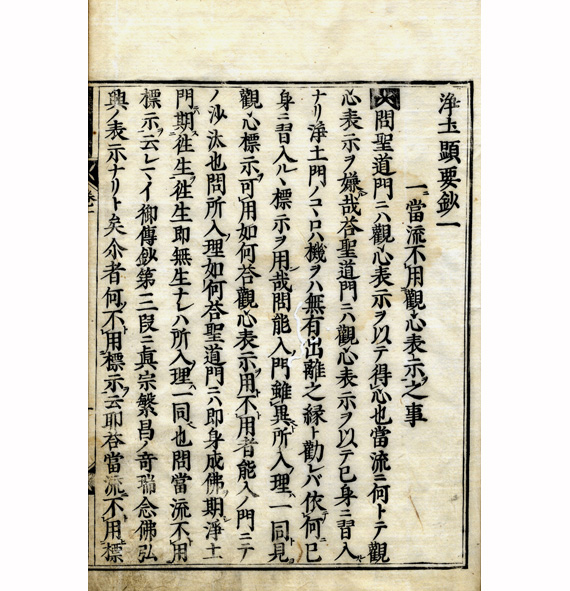 淨土顯要鈔一
一當流不用觀心表示之事
問聖道門ニハ觀心表示ヲ以テ得心也當流ニ何トテ觀
心表示ヲ嫌哉答聖道門ニハ觀心表示ヲ以テ已身ニ習入
ナリ淨土門ノコヽロハ機ヲハ無有出離之縁ト勸レバ依何已
身ニ習入ルヽ標示ヲ用哉問能入門雖異所入理一同見
觀心標示可用如何答觀心表示用不用者能入ノ門ニテ
ノ沙汰也問所入理如何答聖道門ニハ即身成佛期淨土
門期徃生徃生即無生ナレハ所入理一同也問當流不用
標示云レヽイ御傳鈔第三段ニ眞宗繁昌ノ竒瑞念佛弘
興ノ表示ナリト矣尒者何不用標示云耶答當流不用標